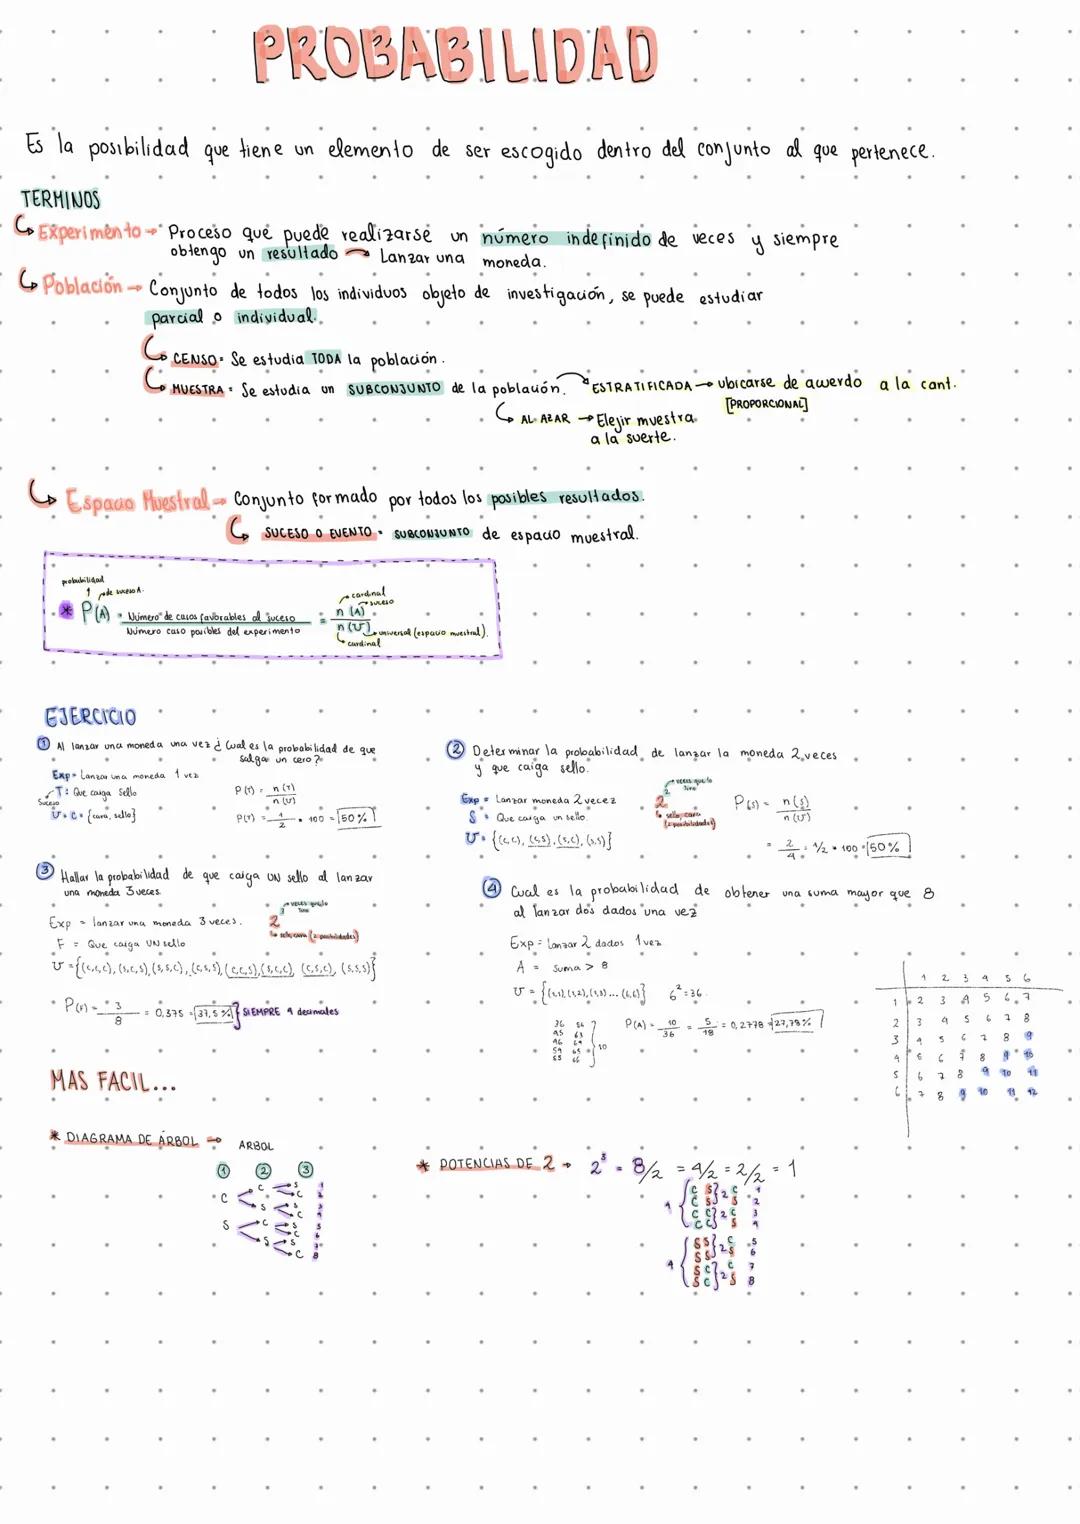 PROBABILIDAD
Es la posibilidad que tiene un elemento de ser escogido dentro del conjunto al que pertenece.
TERMINOS
Experimento → Proceso que puede realizarse un número indefinido de veces y siempre
obtengo un resultado → Lanzar una moneda.
Población → Conjunto de todos los individuos objeto de investigación, se puede estudiar
parcial o individual.
CENSO = Se estudia TODA la población.
MUESTRA = Se estudia un SUBCONJUNTO de la población. ESTRATIFICADA → ubicarse de acuerdo a la cant.
[PROPORCIONAL]
AL AZAR → Elejir muestra
a la suerte.
Espacio Muestral → Conjunto formado por todos los posibles resultados.
SUCESO O EVENTO = SUBCONJUNTO de espacio muestral.
probabilidad
de suceso A.
cardinal
suceso
* P(A) = Número de casos favorables al suceso = n (A)
Número caso posibles del experimento n (U) universal (espacio muestral).
cardinal
EJERCICIO
① Al lanzar una moneda una vez ¿ Cual es la probabilidad de que
salga un cero?
Exp = Lanzar una moneda 1 vez
T: Que caiga Sello
Suceso
U = C = {cara, sello}
P(T) = n(T)
n(U)
P(T) = 1/2 * 100 = 50%
② Determinar la probabilidad de lanzar la moneda 2 veces
y que caiga sello.
Exp = Lanzar moneda 2 vecez
S = Que caiga un sello
U = {(c,c), (c,s), (s,c), (s,s)}
2 veces que lo
tiro
2
sello, cara
(2 posibilidades)
P(S) = n(S)
n(U)
= 2/4 = 1/2 * 100 = 50%
③ Hallar la probabilidad de que caiga UN sello al lanzar
una moneda 3 veces
Exp = lanzar una moneda 3 veces.
F = Que caiga UN sello
3 veces que lo
tiro
2
sello, cara (2 posibilidades)
U = {(c,c,c), (s,c,s), (s,s,c), (c,s,s), (c,c,s), (s,c,c), (c,s,c), (s,s,s)}
P(F) = 3/8 = 0,375 = 37,5% } SIEMPRE 4 decimales
④ Cual es la probabilidad de obtener una suma mayor que 8
al lanzar dos dados una vez
Exp = Lanzar 2 dados 1 vez
A = suma > 8
U = {(1,1), (1,2), (1,3) ... (6,6)} 6² = 36.
36 56
45 63
46 64
54 65
55 66
10
P(A) = 10/36 = 5/18 = 0,2778 = 27,78%
1 2 3 4 5 6
1 2 3 4 5 6 7
2 3 4 5 6 7 8
3 4 5 6 7 8 9
4 5 6 7 8 9 10
5 6 7 8 9 10 11
6 7 8 9 10 11 12
MAS FACIL...
* DIAGRAMA DE ÁRBOL → ARBOL
① ② ③
C C S 1
C 2
S S 3
C 4
S C S 5
C 6
S S 7
C 8
* POTENCIAS DE 2 → 2³ = 8/2 = 4/2 = 2/2 = 1
4 { C S } 2 C 1
C S S 2
C C } 2 C 3
C C S 4
4 { S S } 2 C 5
S S S 6
S C } 2 C 7
S C S 8